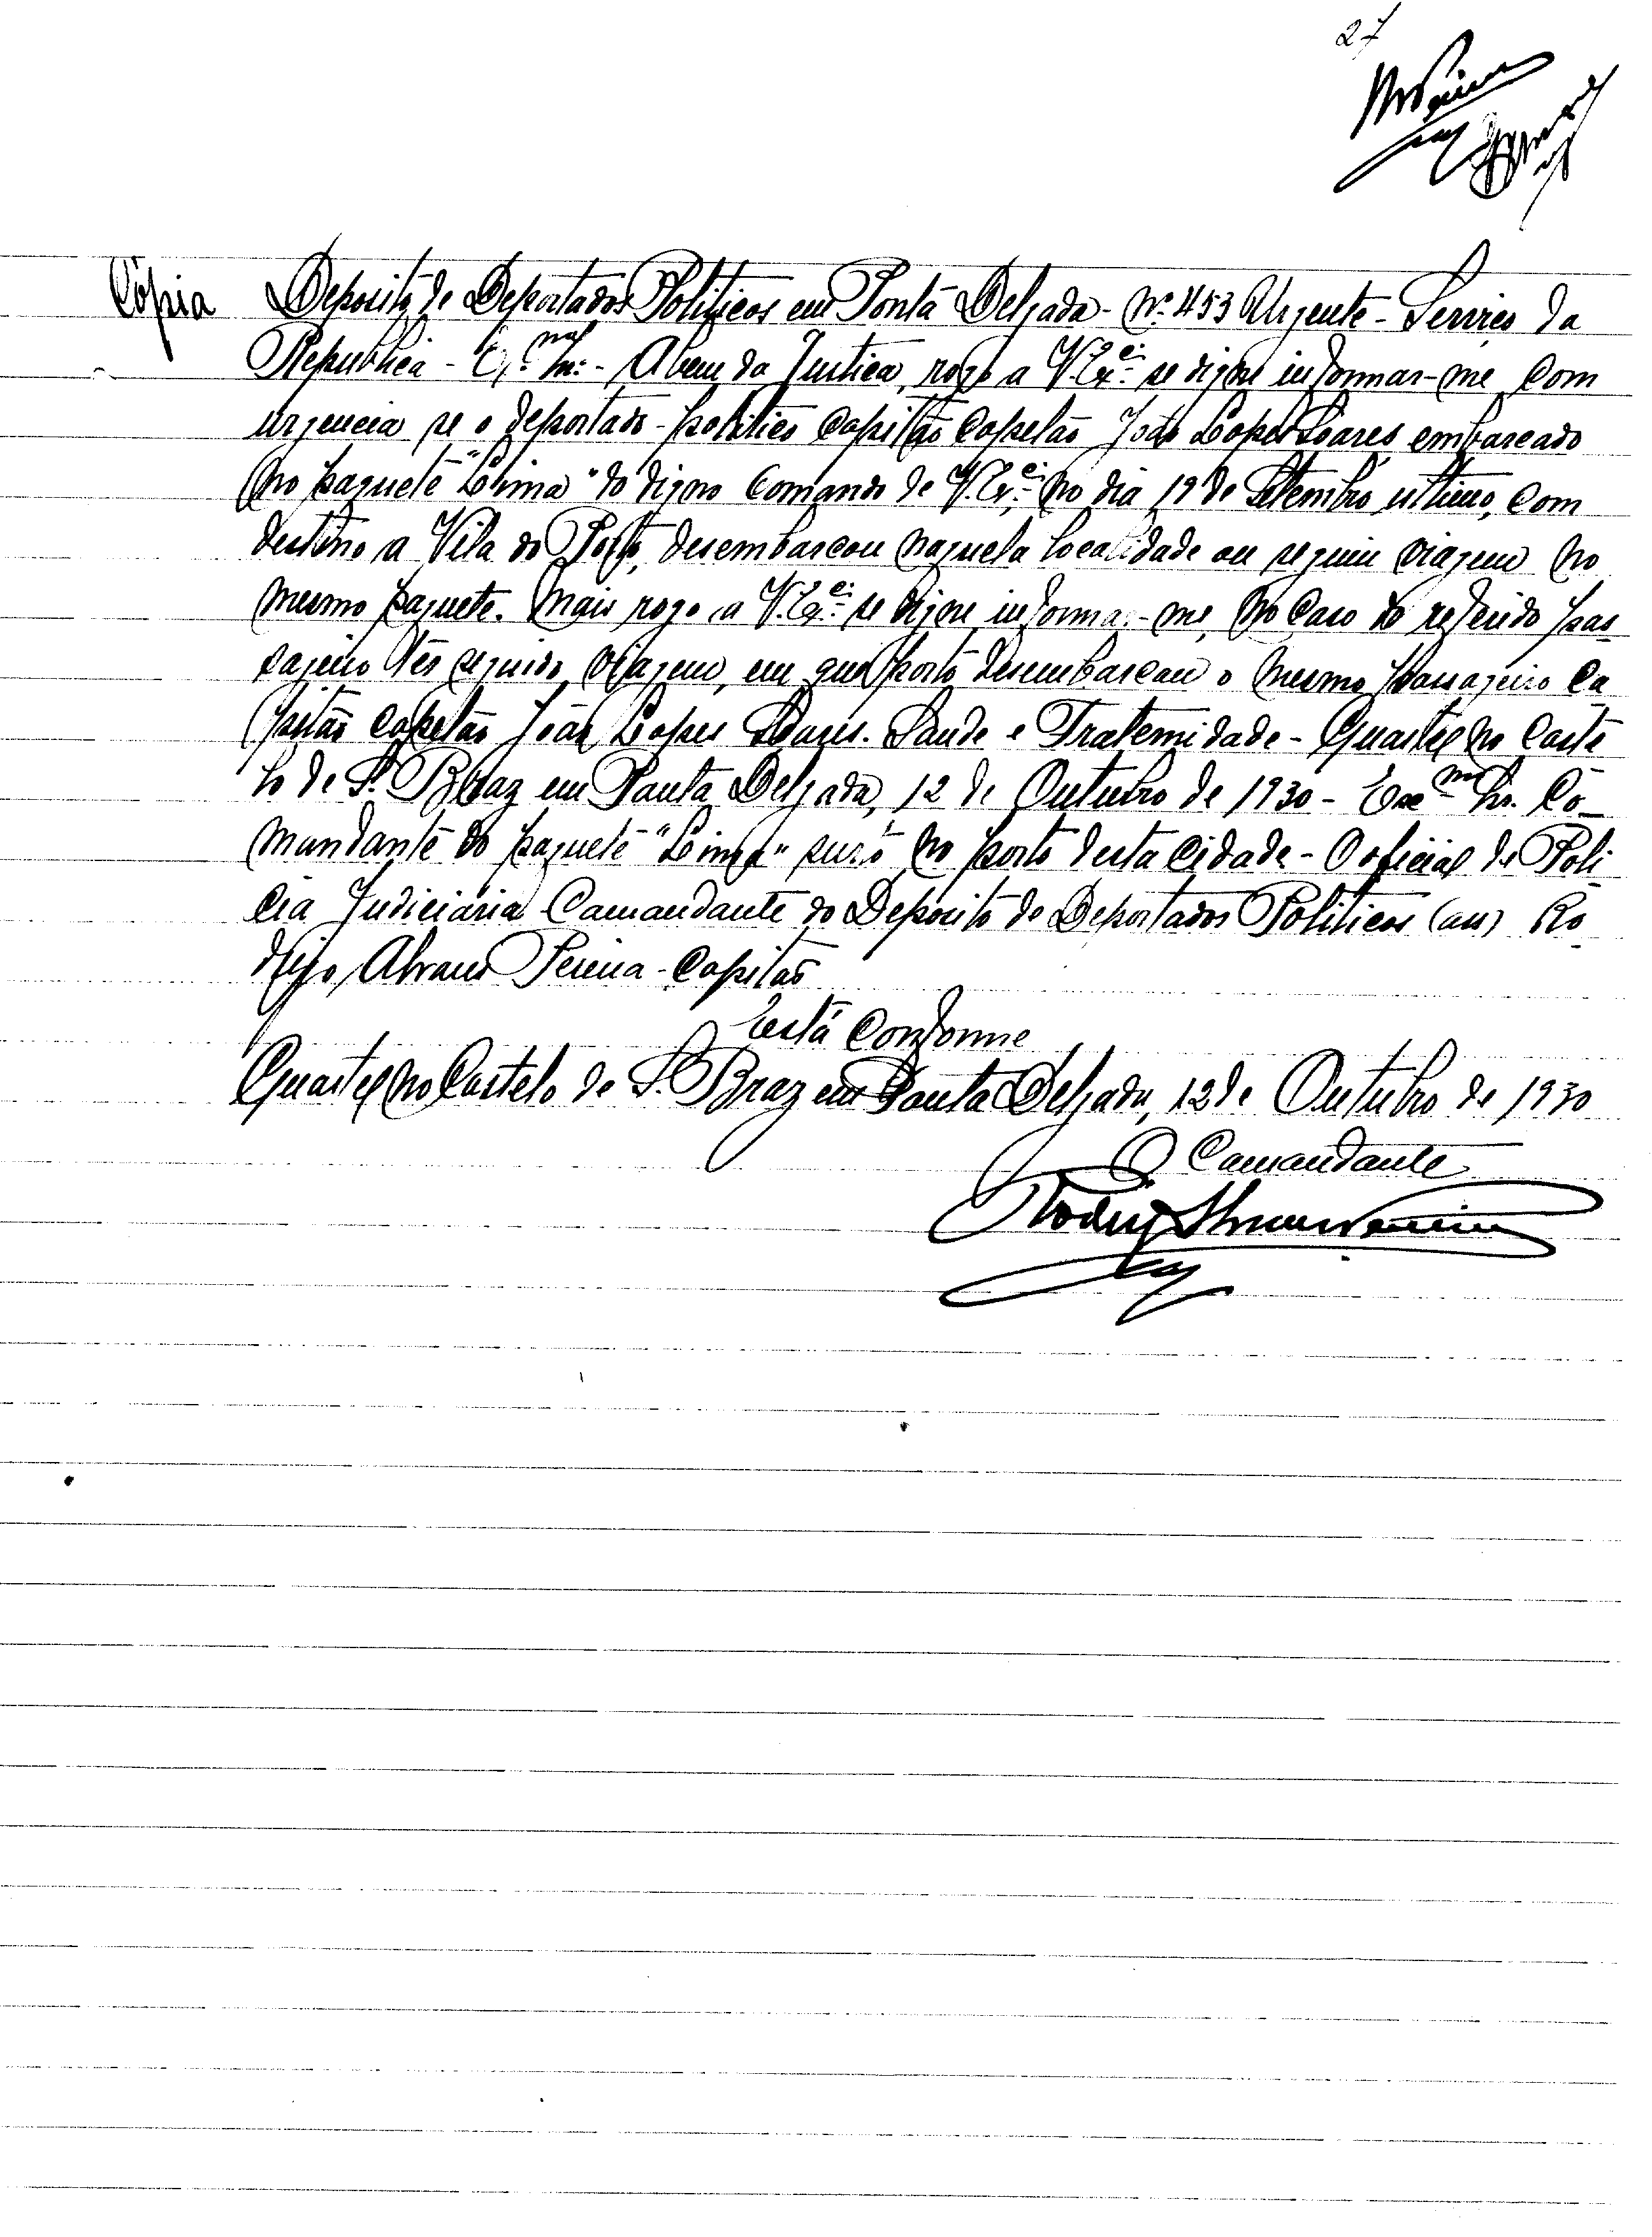 27
Cópia
Deposito de Deportados Politicos em Ponta Delgada - Nº 453 Urgente - Serviço da
Republica - Ex.mo Snr. - A bem da Justiça, rogo a V. Ex.cia se digne informar-me com
urgencia se o deportado politico Capitão Capelão João Lopes Soares embarcado
no paquete "Lima" do digno Comando de V. Ex.cia no dia 19 de Setembro ultimo, com
destino a Vila do Porto, desembarcou naquela localidade ou seguiu viagem no
mesmo paquete. Mais rogo a V. Ex.cia se digne informar-me, no caso do referido pas-
sageiro ter seguido viagem, em que porto desembarcou o mesmo passageiro Ca
pitão Capelão João Lopes Soares. Saude e Fraternidade - Quartel no Caste
lo de S. Braz em Ponta Delgada, 12 de Outubro de 1930 - Exc.mo Snr. Co-
mandante do paquete "Lima" surto no porto desta Cidade - O oficial de Poli
cia Judiciaria Comandante do Deposito de Deportados Politicos (ass) Ro
drigo Alvares Pereira - Capitão
Está Conforme
Quartel no Castelo de S. Braz em Ponta Delgada, 12 de Outubro de 1930
O Comandante
Rodrigo Alvares Pereira
Cap